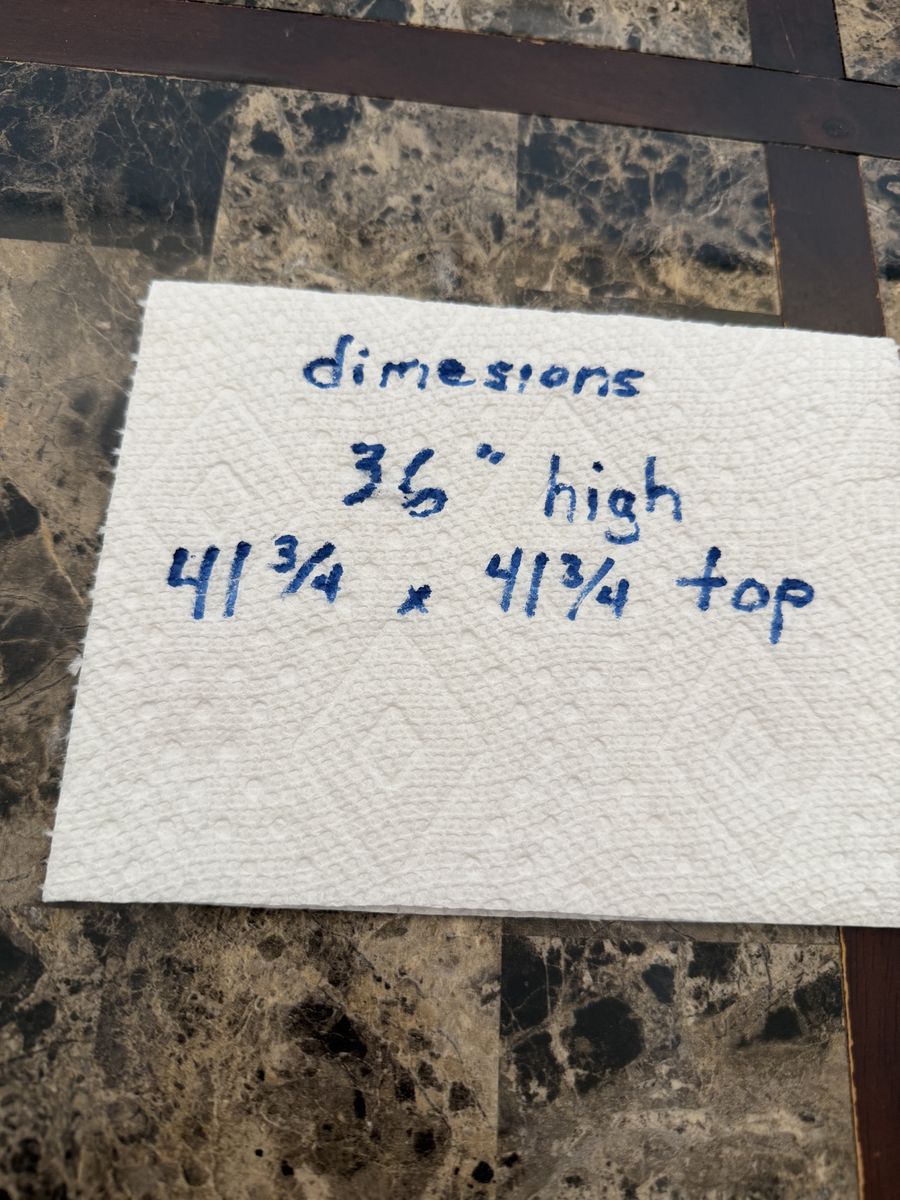 dimesions
36" high
41 3/4 x 41 3/4 top